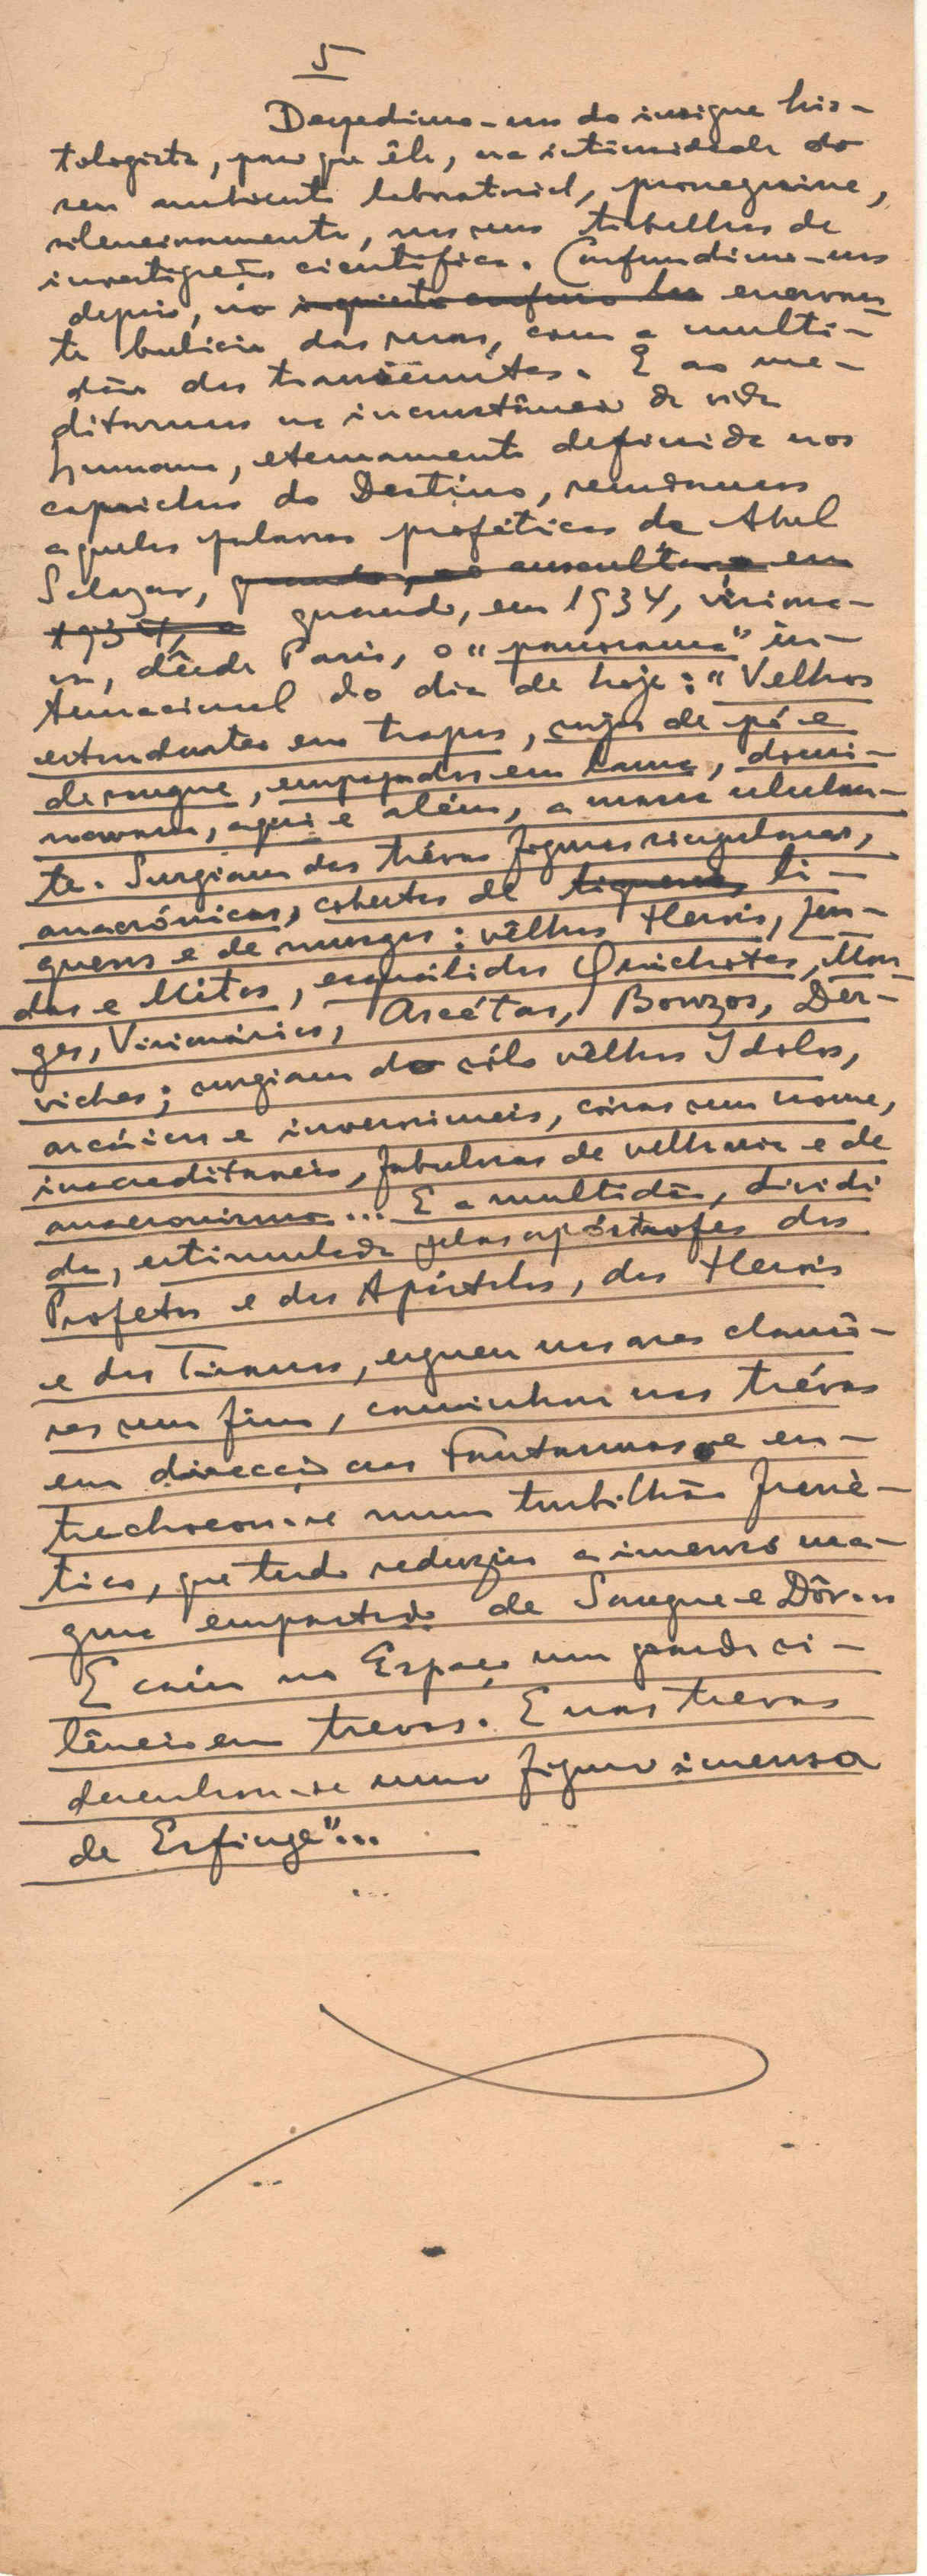 5
Despedimo-nos do insigne his-
tologista, para que êle, na intimidade do
seu ambiente laboratorial, prosseguisse,
silenciosamente, nos seus trabalhos de
investigação científica. Confundimo-nos
depois, no inquieto confuso enervan-
te bulício das ruas, com a multi-
dão dos transeuntes. E ao me-
ditarmos na inconstância da vida
humana, eternamente definida nos
caprichos do Destino, relembramos
aquelas palavras proféticas de Abel
Salazar, quando, ao auscultar, em
1934, o quando, em 1934, visiona-
va, dêsde Paris, o "panorama" in-
ternacional do dia de hoje: "Velhos
estandartes em trapos, sujos de pó e
de sangue, empapados em lama, domi-
navam, aqui e além, a massa ululan-
te. Surgiam das trévas figuras singulares,
anacrónicas, cobertas de liquenes, li-
quenes e de musgos: vélhos Herois, Len-
das e Mitos, esquálidos Quichotes, Mon-
ges, Visionários, Ascétas, Bonzos, Der-
viches; surgiam do sólo vélhos Idolos,
arcáicos e inverosimeis, coisas sem nome,
inacreditaveis, fabulosas de velharia e de
anacronismo... E a multidão, dividi
da, estimulada pelas apóstrofes dos
Profetas e dos Apóstolos, dos Herois
e dos Tiranos, ergueu nos ares clamô-
res sem fim, caminhou nas trévas
em direcção aos Fantasmas e en-
trechocou-se num turbilhão frené-
tico, que tudo reduziu a imenso ma-
gma empastado de Sangue e Dôr...
E caíu no Espaço um grande si-
lêncio em trevas. E nas trevas
desenhou-se uma figura imensa
de Esfinge"...